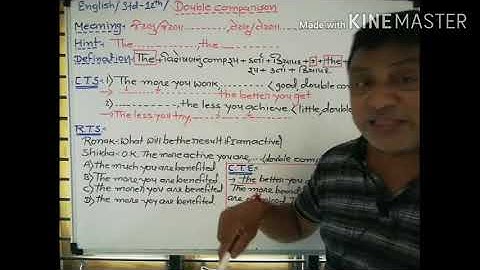 Made with KINEMASTER
English/Std-12th/ Double comparison
Meaning:- જેટલું/જેટલા ............, તેટલું/તેટલા
Hint:- The ............, the ............
Defination:- The + વિશેષણનું + કર્તા + ક્રિયાપદ + , + the +
રૂપ + કર્તા + ક્રિયાપદ
C.T.S:- 1) The more you work, ............ (good, double
............ the better you get
2) ............, the less you achieve. (little, double
→ The less you try, ............
R.T.S:-
Ronak:- What will be the result if I am active?
Shikha:- O.K. The more active you are, ... (double com
A) The much you are benefited
B) The more you are benefited.
C) The more you are benefited
D) The more you are benefited.
C.T.E:-
→ The better you
The more
are